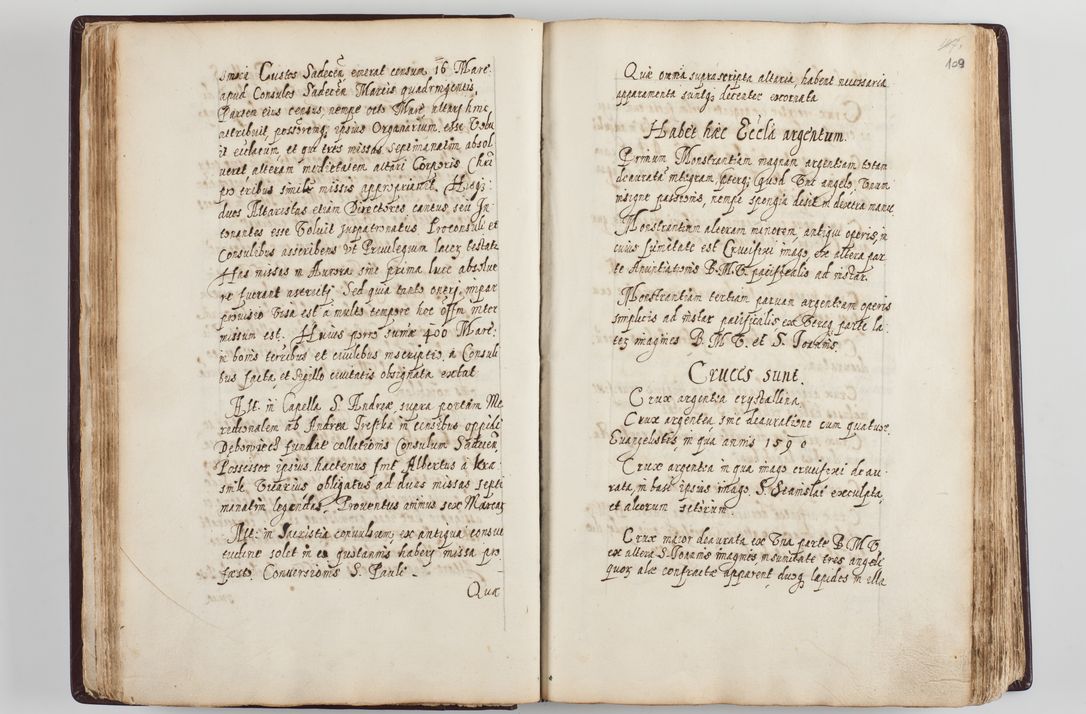 Custos Sadecen emerat censum 16 Marc.
apud Consules Sadecen Marcis quadringentis,
Partem eius census, nempe octo Marc
attribuit, postremq ipsius Organarium esse Volu
it et qui tres missas septimanatim absol
veret, alteram medietatem altari Corporis Chri
pro tribus similr missis appropriavit, Hosq:
duos Altaristas etiam Directores cantus, seu In
tonantes esse Voluit Juspatronatus Proconsuli et
Consulibus ascribens vt Privilegium
Has missas in Aurora sine prima luce absolve
re fuerant Sed quia tanto oneri impar
provisio Visa est a multo tempore hoc offm inter
missum est. Huius porro sumae 400 Marc.
in bonis terribus et civilibus inscriptio, a Consuli
bus facta, et Sigillo civitatis obsignata extat
Alt: in Capella S. Andreae, supra portam Me
ridionalem ab Andrea in censibus oppidi
Deboviecz fundat collationis Consulum Sadecen,
Possessor ipsius hactenus fuit Albertus a
smile Vicarius obligatus ad duas missas septi
manatim legendas. Proventus annuus sex Marcas
Alt: in Sacristia convulsum, ex antiqua consue
tudine solet in eo quotannis haberi missa pro
festo Conversionis S. Pauli -
Quae
109
Quae omnia suprascripta altaria, habent necessaria
apparamenta suntq; decenter exornata
Habet haec Eccla argentum.
Primum Monstrantiam magnam argenteam totam
deauratam integram, pterq; quod Vni angelo, Vnum
insigne passionis, nempe spongia desit in dextera manu
Monstrantiam alteram minorem, antiqui operis, in
cuius sumitate est Crucifixi imago, ex altera par
te Anuntiationis B.M.V. pacificalis ad instar.
Monstrantiam tertiam parvam argenteam operis
simplicis ad instar pacificalis ex Vtroq; parte la-
tes imagines B. M. V. et S. Joannis.
Cruces sunt.
Crux argentea crystallina,
Crux argentea, sine deauratione cum quatuor
Evangelistis, in qua annis 1590
Crux argentea in qua imago crucifixi deau-
rata, in basi ipsius imago S. Stanislai exculpta,
et aliorum setorum.
Crux maior deaurata ex Vna parte B.M.V.
ex altera S. Joannis imagines, in sumitate tres angeli
quor alae confractae apparent, duoq lapides in illa